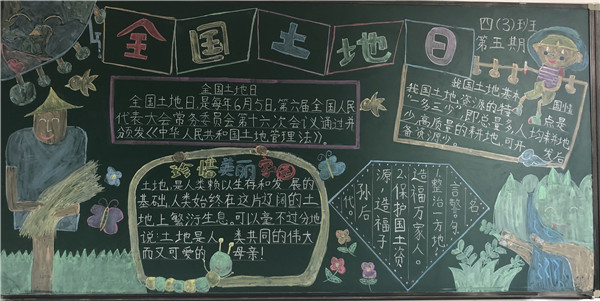 全国土地日
四(3)班
第五期
全国土地日
全国土地日,是每年6月5日,第六届全国人民
代表大会常务委员会第十六次会议通过并
颁发《中华人民共和国土地管理法》。
我国土地基本国情
我国土地资源的特点是
"一多三少",即总量多人均耕地
少,高质量的耕地,可开发后
备资源少。
珍惜美丽家园
土地,是人类赖以生存和发展的
基础,人类始终在这片辽阔的土
地上繁衍生息。可以毫不过分地
说:土地是人类共同的伟大
而又可爱的母亲!
名
言警句
1.整治一方地,
造福万家人。
2.保护国土资
源,造福子
孙后
代。